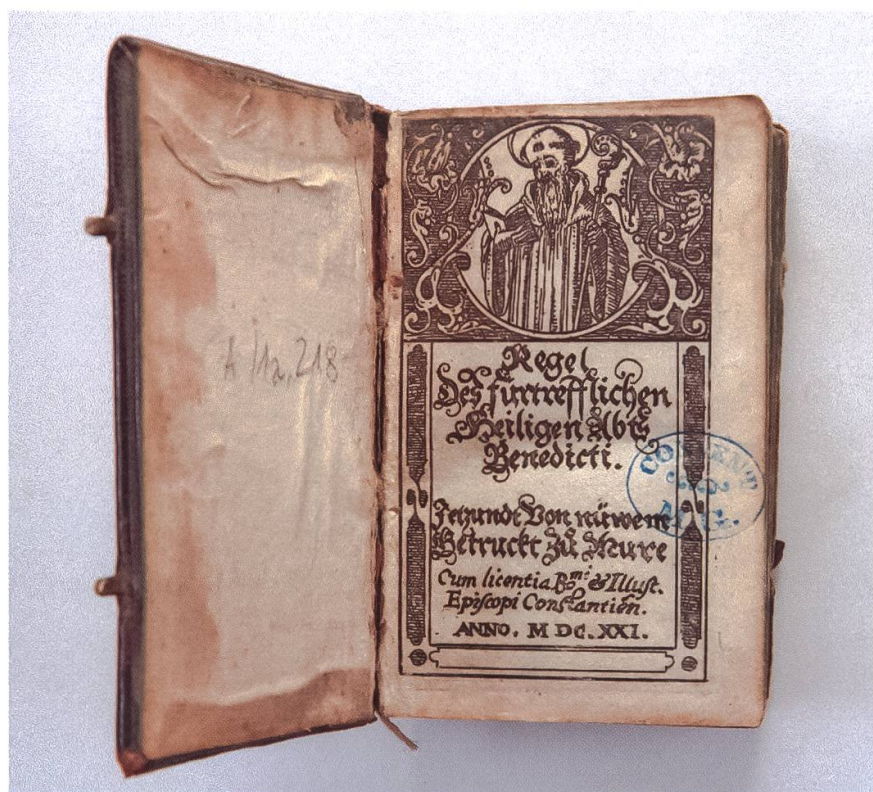 A 1a, 218
Regel
Des fürtrefflichen
Heiligen Abts
Benedicti.
Jetzundt Von nüwem
Getruckt Zů Mure
Cum licentia Rmi & Illust.
Episcopi Constantien̄.
ANNO. M DC. XXI.
CONVENT